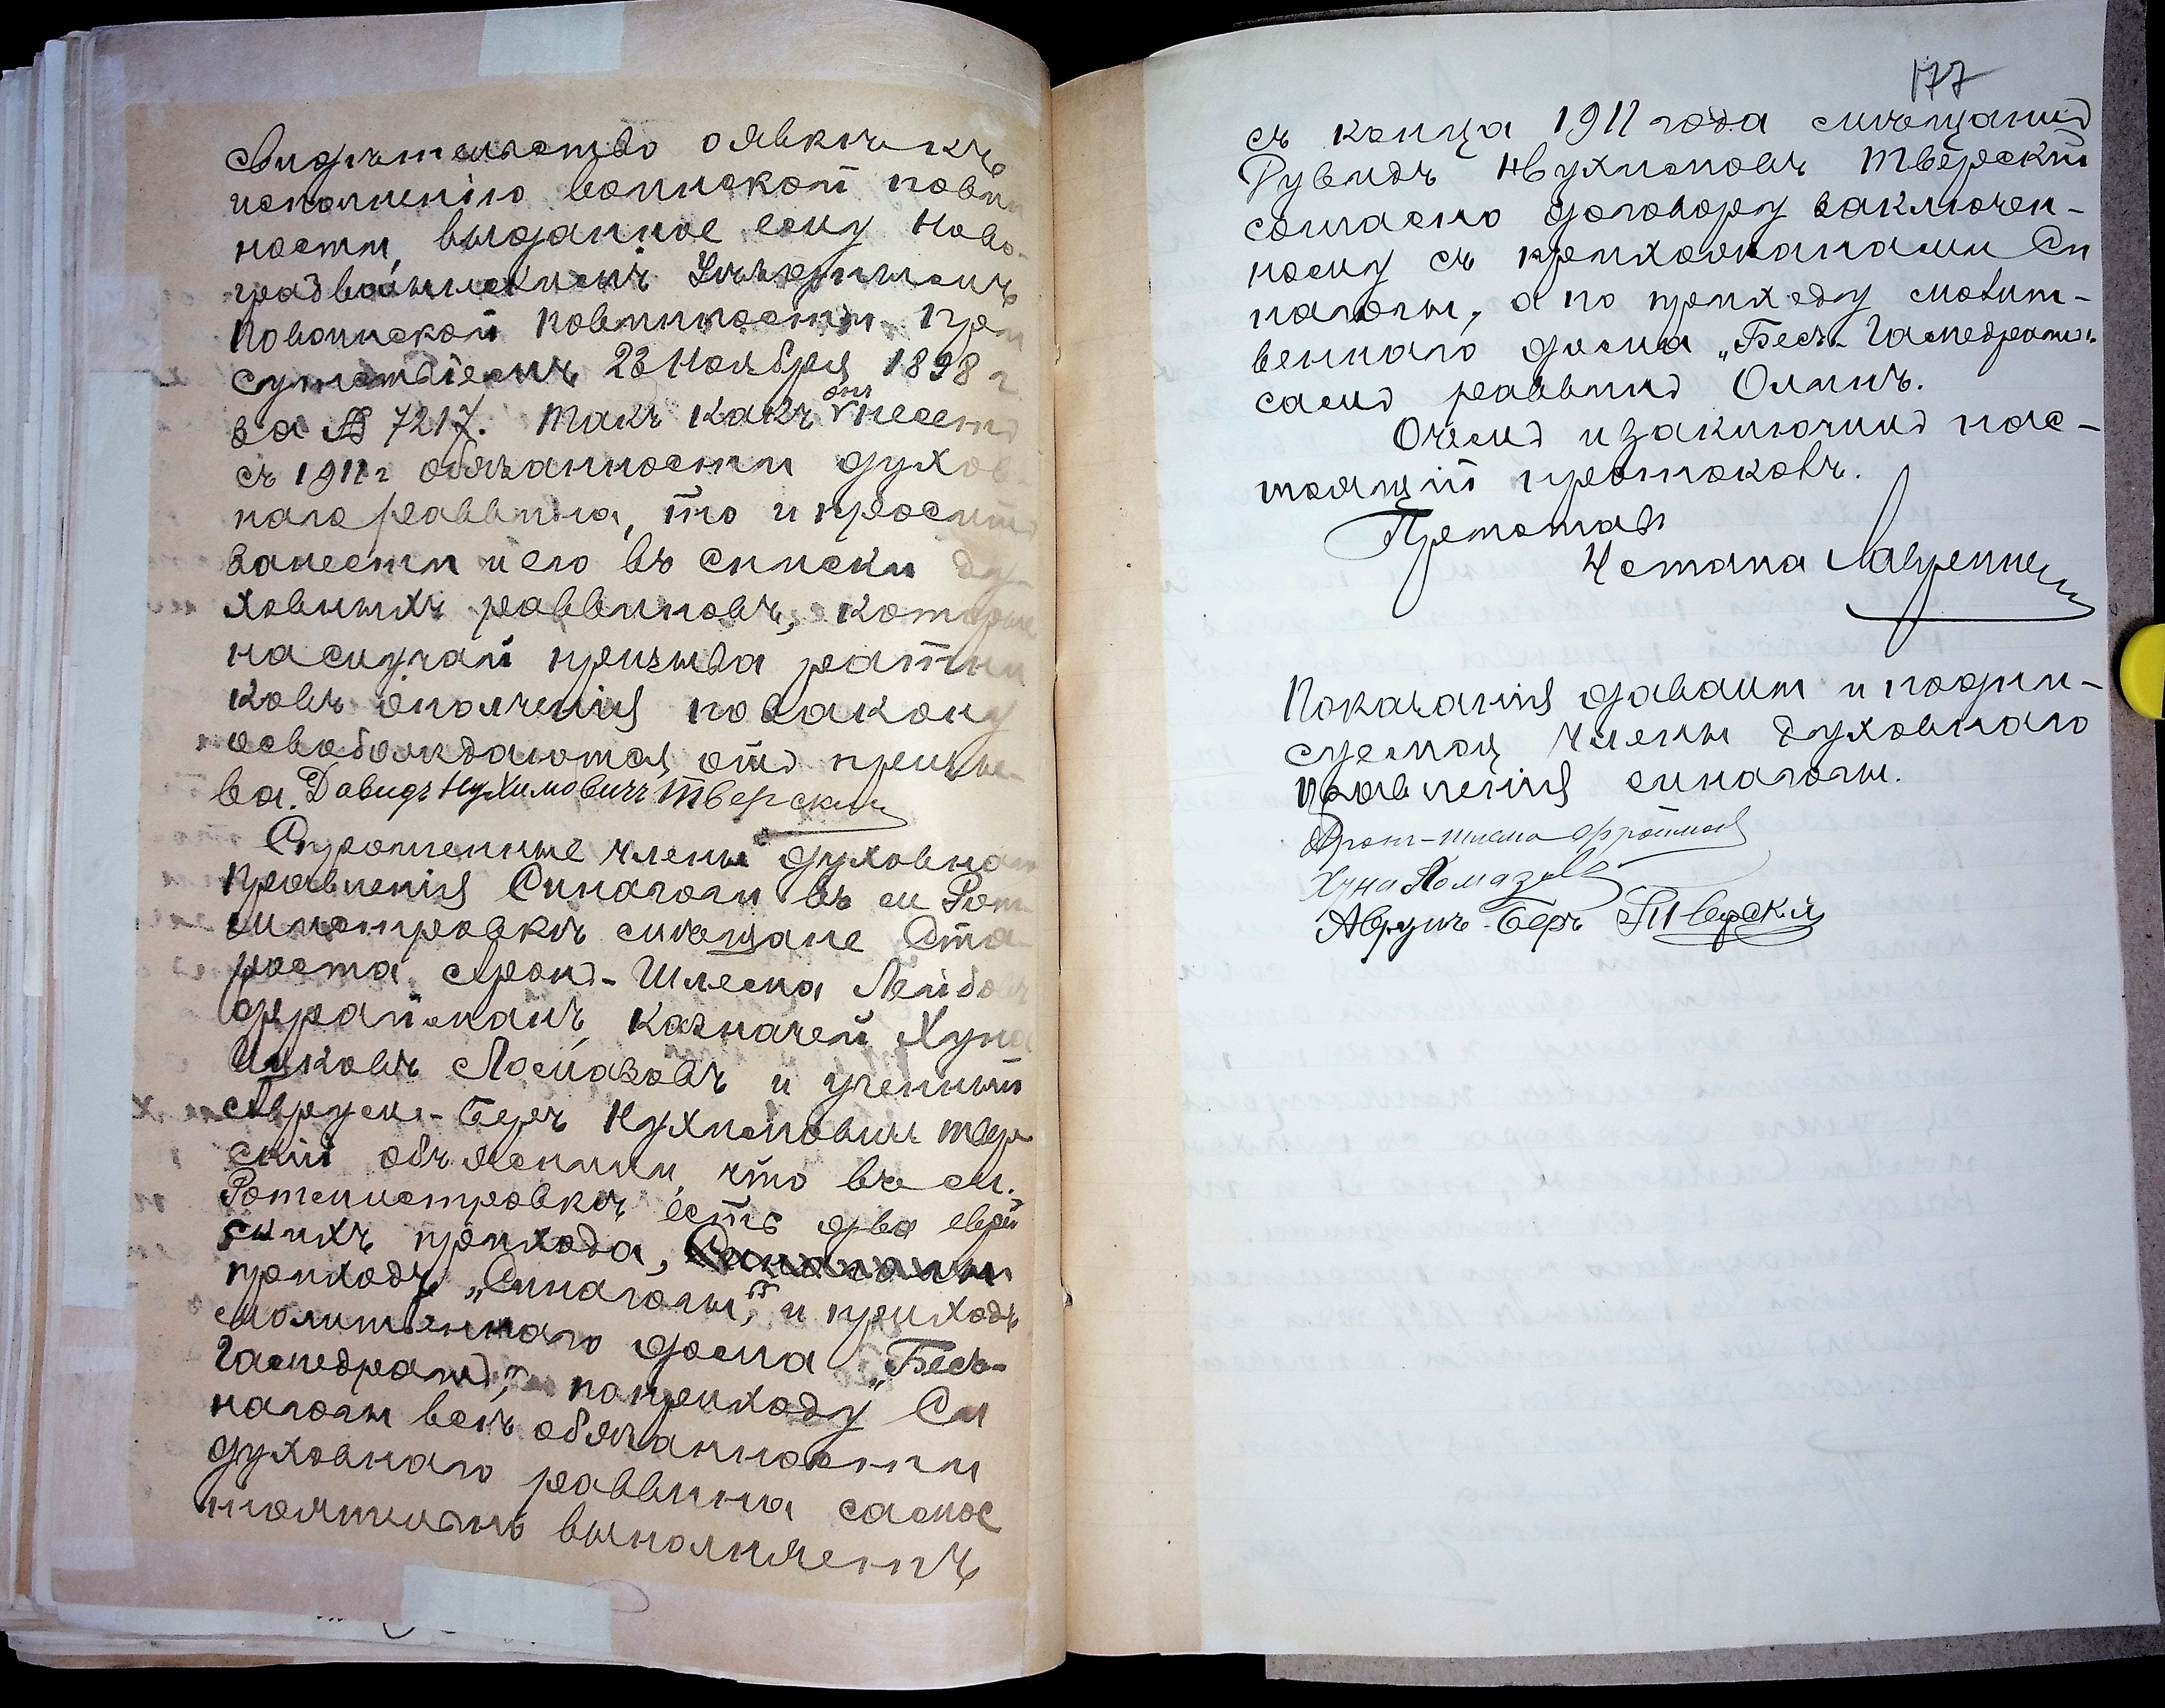 свидѣтельство о явкѣ къ
исполненію воинской повин
ности, выданное ему Ново-
градволынскимъ Уѣзднымъ
по воинской повинности При
сутствіемъ 23 Ноября 1898 г
за № 7217. Такъ какъ онъ несетъ
съ 1911 г обязанности духов-
наго раввина, то и проситъ
занести и его въ списки ду-
ховныхъ раввиновъ, которые
на случай призыва ратни
ковъ ополченія по закону
освобождаются отъ призы-
ва. Давидъ Нухимовичъ Тверскій
Спрошенные члены духовнаго
правленія Синагоги въ м Рот
мистровкѣ мѣщане Ста
роста Аронъ-Шлема Лейбовъ
Фрайманъ, казначей Хуна
Ицковъ Ломазовъ и ученный
Аврумъ-Беръ Нухимовичъ Твер
скій объяснили, что въ м.
Ротмистровкѣ есть два еврей
скихъ прихода,
приходъ „Синагоги" и приходъ
молитвеннаго дома „Бесъ-
Гамедрашъ", по приходу Си
нагоги всѣ обязанности
духовнаго раввина самос
тоятельно выполняетъ
177
съ конца 1911 года мѣщанинъ
Нухимовъ Тверскій
согласно договору заключен-
ному съ прихожанами Си
нагоги, а по приходу молит-
веннаго дома „Бесъ-Гамедрашъ"
самъ раввинъ
О чемъ и заключилъ нас-
тоящій протоколъ.
Приставъ
Показанія давали и подпи-
суемся члены духовнаго
правленія синагоги.
Арон-Шлема Фрайман
Хуна Ломазов
Аврумъ-Беръ Тверскій